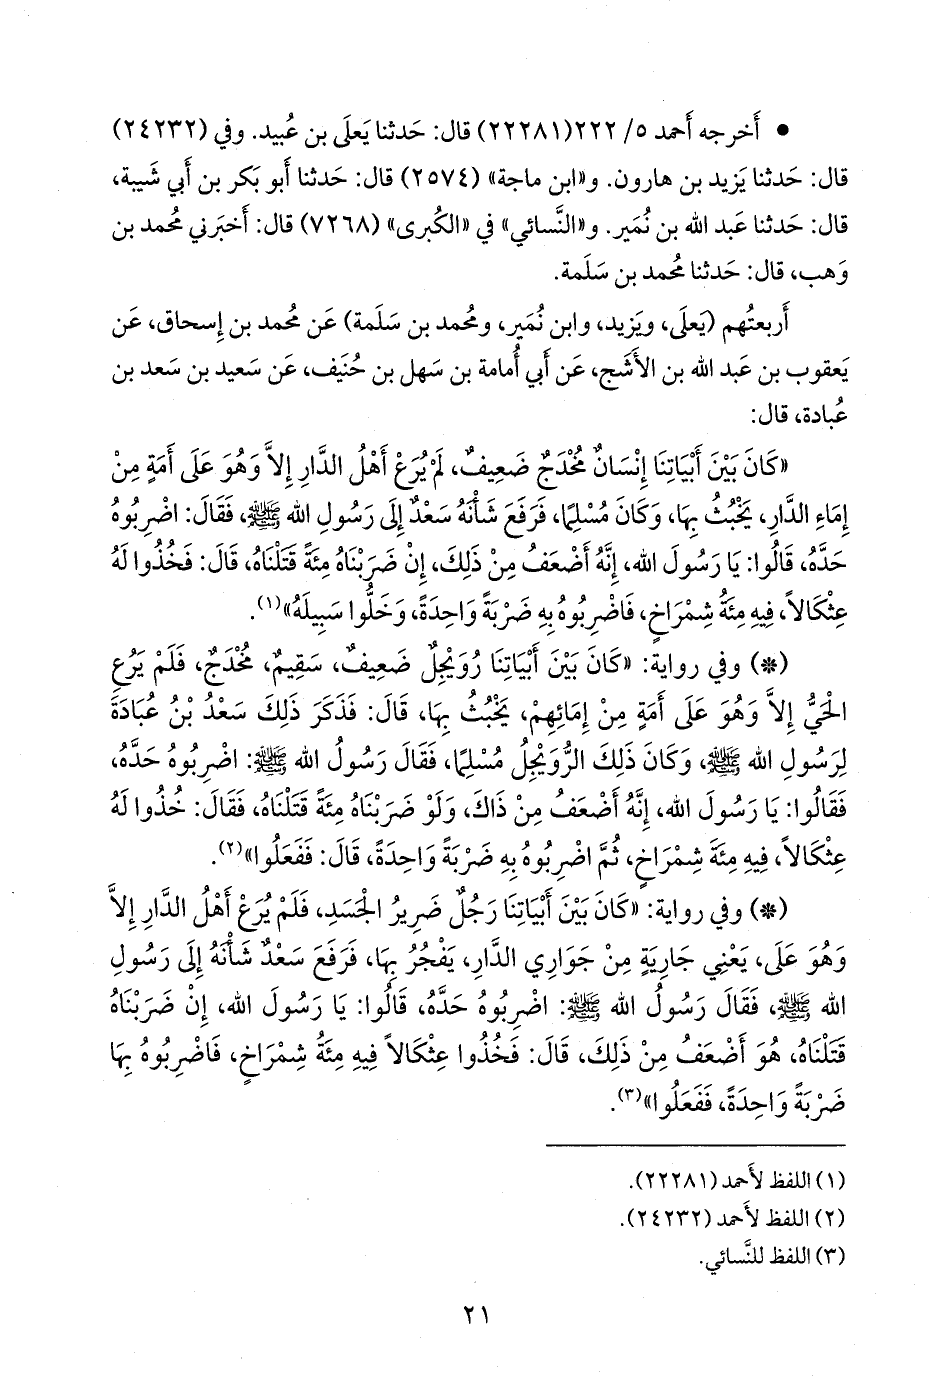 • أَخرجه أَحمد ٥/ ٢٢٢(٢٢٢٨١) قال: حَدثنا يَعلَى بن عُبيد. وفي (٢٤٢٣٢)
قال: حَدثنا يَزيد بن هارون. و«ابن ماجة» (٢٥٧٤) قال: حَدثنا أَبو بَكر بن أَبي شَيبة،
قال: حَدثنا عَبد الله بن نُمَير. و«النَّسائي» في «الكُبرى» (٧٢٦٨) قال: أَخبَرني مُحمد بن
وَهب، قال: حَدثنا مُحمد بن سَلَمة.
أَربعتُهم (يَعلَى، ويَزيد، وابن نُمَير، ومُحمد بن سَلَمة) عَن مُحمد بن إِسحاق، عَن
يَعقوب بن عَبد الله بن الأَشَج، عَن أَبي أُمامة بن سَهل بن حُنَيف، عَن سَعيد بن سَعد بن
عُبادة، قال:
«كَانَ بَيْنَ أَبْيَاتِنَا إِنْسَانٌ مُخْدَجٌ ضَعِيفٌ، لَمْ يُرَعْ أَهْلُ الدَّارِ إِلاَّ وَهُوَ عَلَى أَمَةٍ مِنْ
إِمَاءِ الدَّارِ، يَخْبُثُ بِهَا، وَكَانَ مُسْلِمًا، فَرَفَعَ شَأْنَهُ سَعْدٌ إِلَى رَسُولِ الله ﷺ، فَقَالَ: اضْرِبُوهُ
حَدَّهُ، قَالُوا: يَا رَسُولَ الله، إِنَّهُ أَضْعَفُ مِنْ ذَلِكَ، إِنْ ضَرَبْنَاهُ مِئَةً قَتَلْنَاهُ، قَالَ: فَخُذُوا لَهُ
عِثْكَالاً، فِيهِ مِئَةُ شِمْرَاخٍ، فَاضْرِبُوهُ بِهِ ضَرْبَةً وَاحِدَةً، وَخَلُّوا سَبِيلَهُ»(١).
(*) وفي رواية: «كَانَ بَيْنَ أَبْيَاتِنَا رُوَيْجِلٌ ضَعِيفٌ، سَقِيمٌ، مُخْدَجٌ، فَلَمْ يَرُعِ
الحَيُّ إِلاَّ وَهُوَ عَلَى أَمَةٍ مِنْ إِمَائِهِمْ، يَخْبُثُ بِهَا، قَالَ: فَذَكَرَ ذَلِكَ سَعْدُ بْنُ عُبَادَةَ
لِرَسُولِ الله ﷺ، وَكَانَ ذَلِكَ الرُّوَيْجِلُ مُسْلِمًا، فَقَالَ رَسُولُ الله ﷺ: اضْرِبُوهُ حَدَّهُ،
فَقَالُوا: يَا رَسُولَ الله، إِنَّهُ أَضْعَفُ مِنْ ذَاكَ، وَلَوْ ضَرَبْنَاهُ مِئَةً قَتَلْنَاهُ، فَقَالَ: خُذُوا لَهُ
عِثْكَالاً، فِيهِ مِئَةَ شِمْرَاخٍ، ثُمَّ اضْرِبُوهُ بِهِ ضَرْبَةً وَاحِدَةً، قَالَ: فَفَعَلُوا»(٢).
(*) وفي رواية: «كَانَ بَيْنَ أَبْيَاتِنَا رَجُلٌ ضَرِيرُ الجَسَدِ، فَلَمْ يُرَعْ أَهْلُ الدَّارِ إِلاَّ
وَهُوَ عَلَى، يَعْنِي جَارِيَةٍ مِنْ جَوَارِي الدَّارِ، يَفْجُرُ بِهَا، فَرَفَعَ سَعْدٌ شَأْنَهُ إِلَى رَسُولِ
الله ﷺ، فَقَالَ رَسُولُ الله ﷺ: اضْرِبُوهُ حَدَّهُ، قَالُوا: يَا رَسُولَ الله، إِنْ ضَرَبْنَاهُ
قَتَلْنَاهُ، هُوَ أَضْعَفُ مِنْ ذَلِكَ، قَالَ: فَخُذُوا عِثْكَالاً فِيهِ مِئَةُ شِمْرَاخٍ، فَاضْرِبُوهُ بِهَا
ضَرْبَةً وَاحِدَةً، فَفَعَلُوا»(٣).
(١) اللفظ لأَحمد (٢٢٢٨١).
(٢) اللفظ لأَحمد (٢٤٢٣٢).
(٣) اللفظ للنَّسائي.
٢١